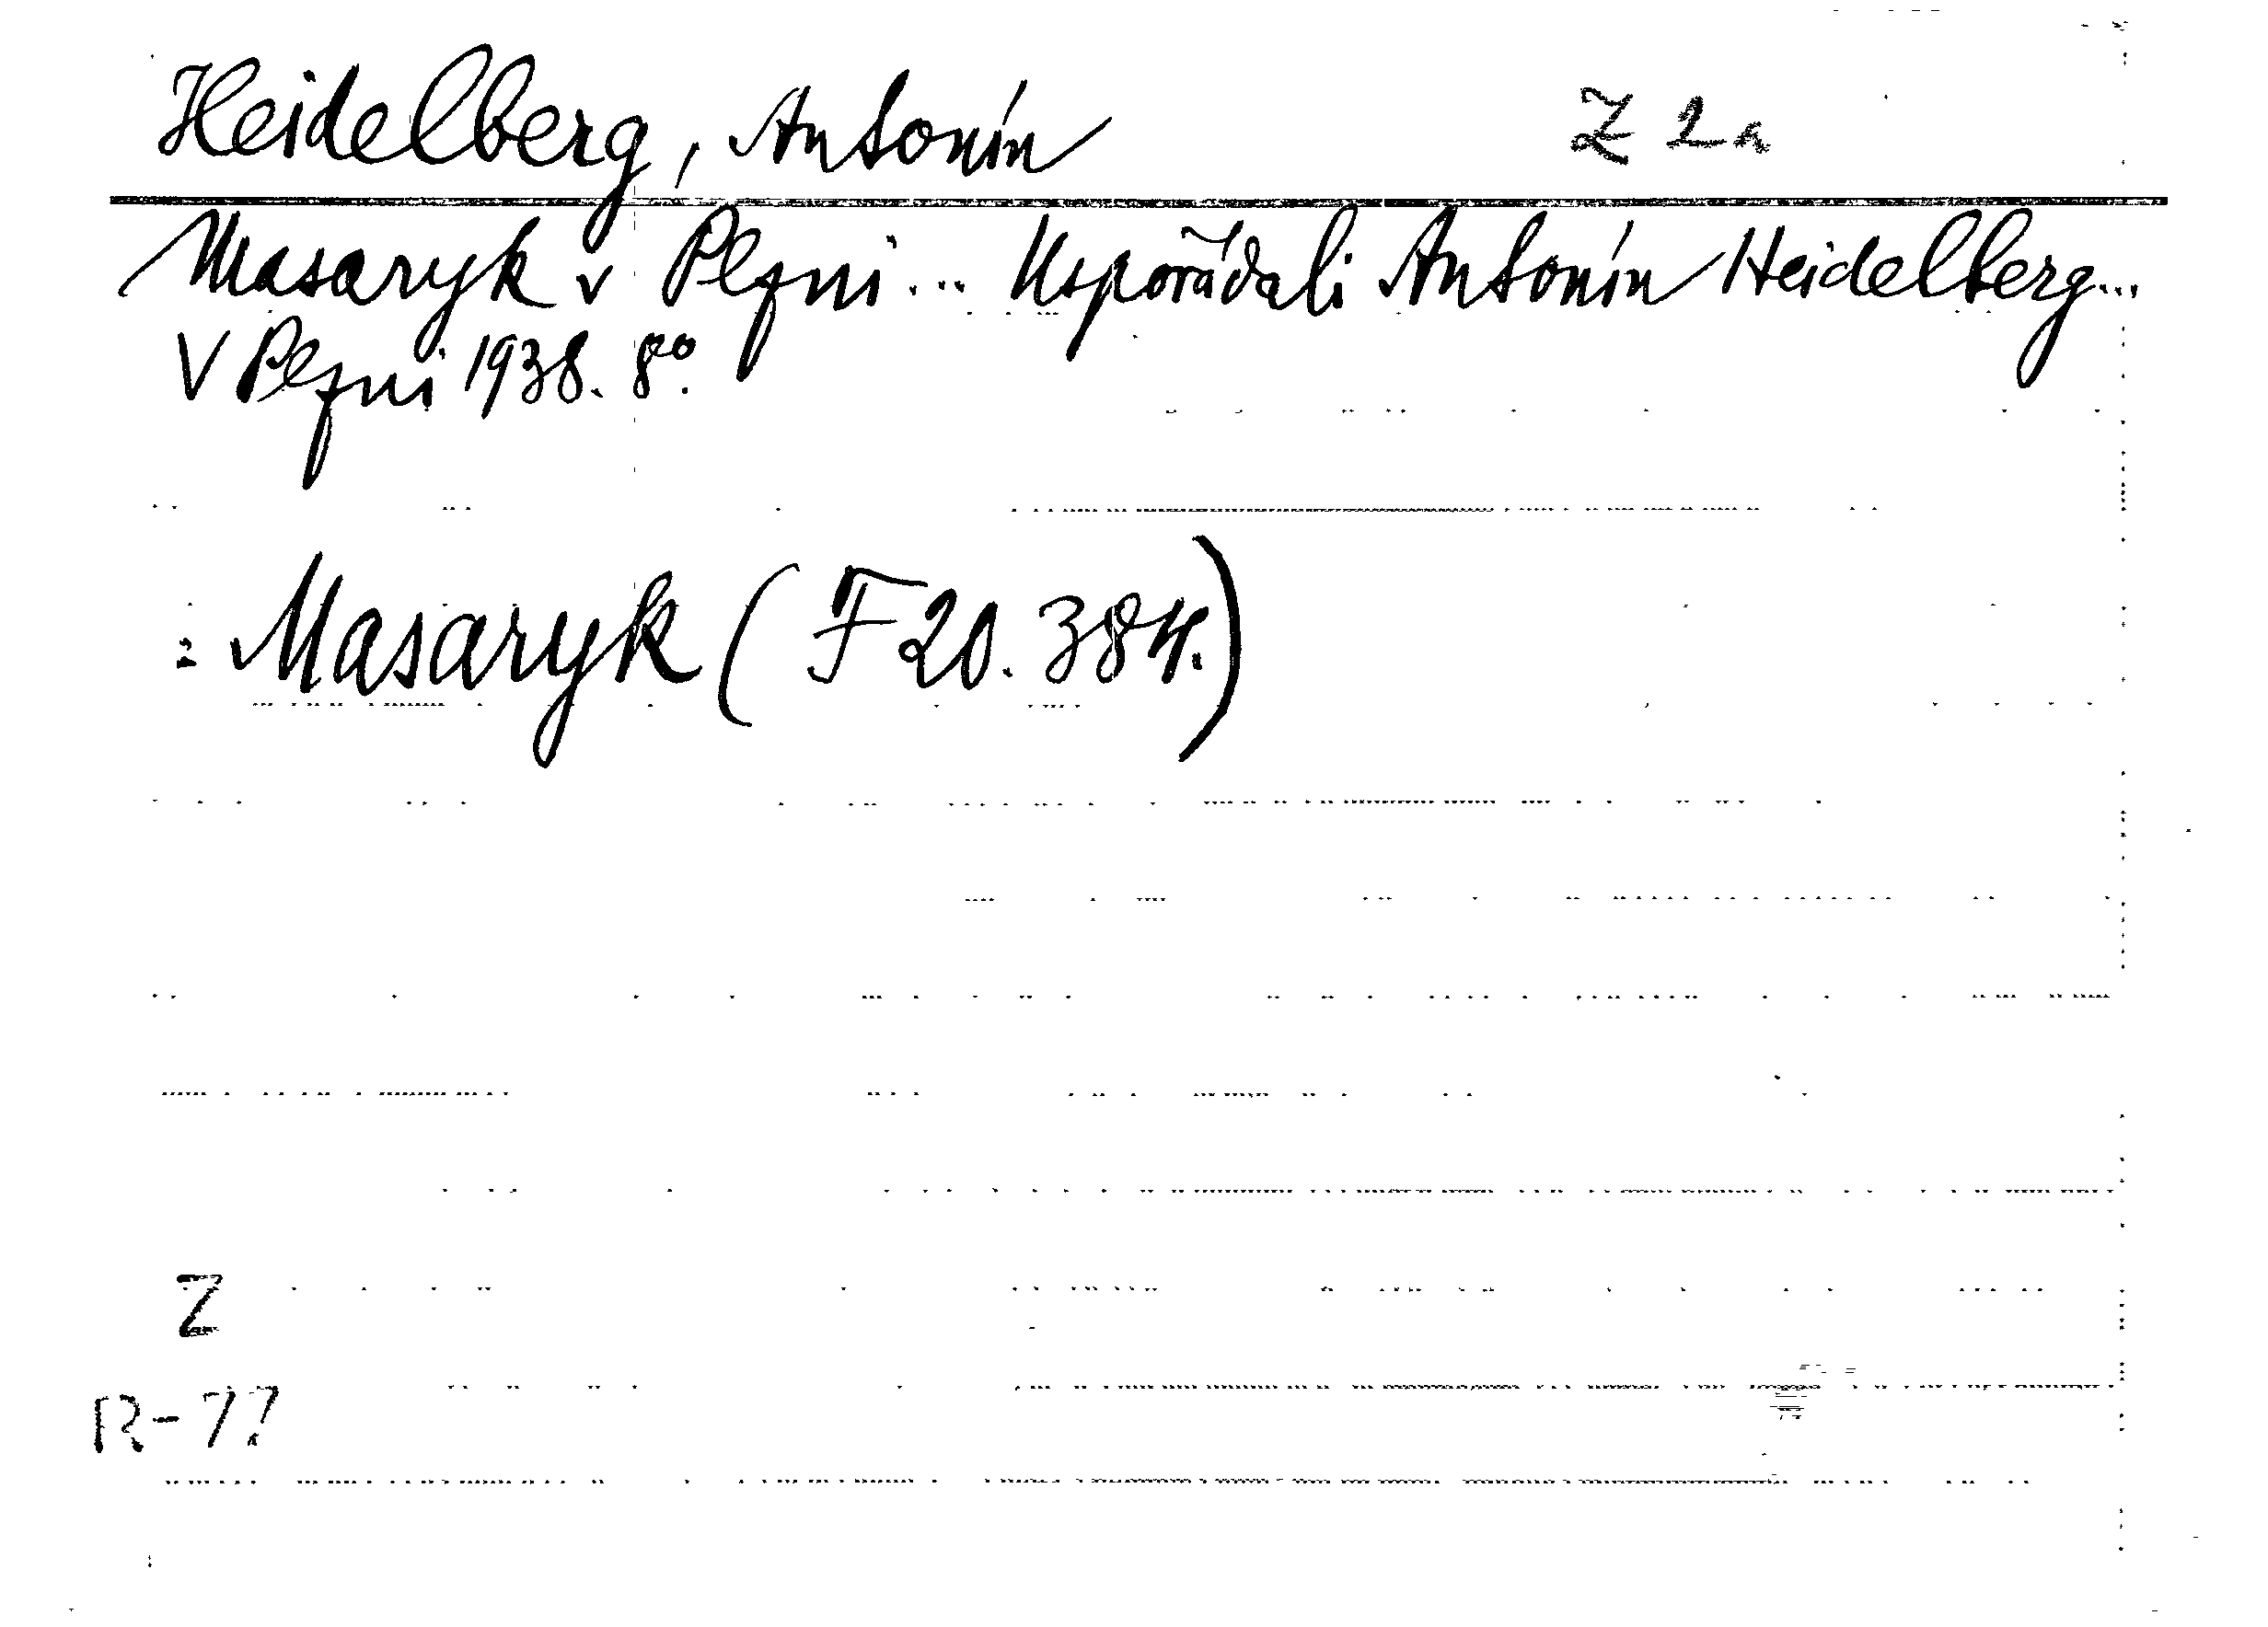 Heidelberg, Antonín Z 2a
Masaryk v Plzni... Uspořádali Antonín Heidelberg...
V Plzni 1938. 8°.
: Masaryk (F 20.384.)
Z
R-77